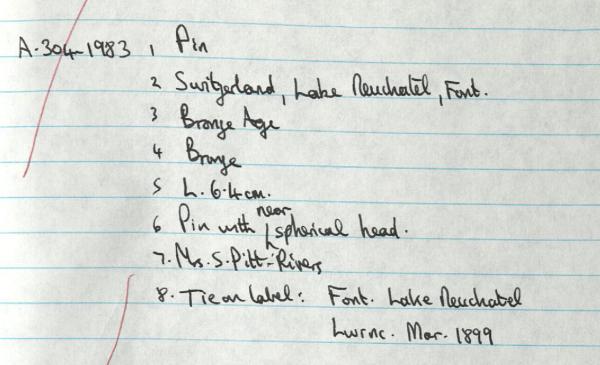 A.304-1983 1 Pin
2 Switzerland, Lake Neuchatel, Font.
3 Bronze Age
4 Bronze
5 L. 6.4cm.
6 Pin with near spherical head.
7. Ms. S. Pitt-Rivers
8. Tie on label: Font. Lake Neuchatel
Mar. 1899